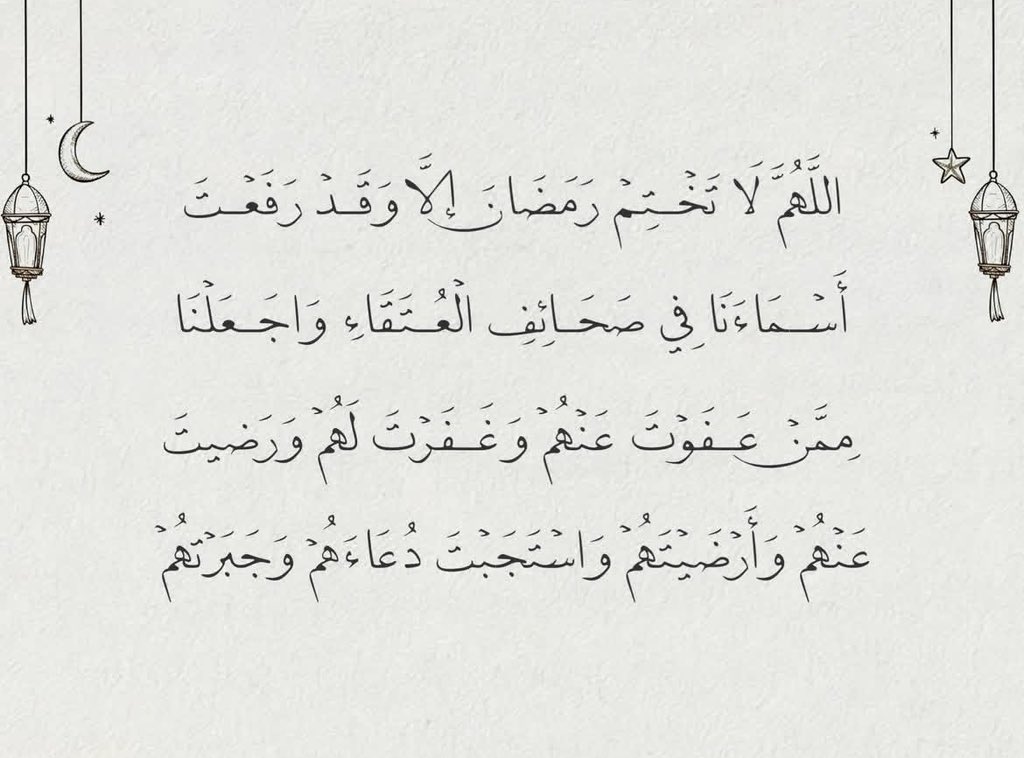 اللَّهُمَّ لَا تَخْتِمْ رَمَضَانَ إِلَّا وَقَدْ رَفَعْتَ
أَسْمَاءَنَا فِي صَحَائِفِ الْعُتَقَاءِ وَاجْعَلْنَا
مِمَّنْ عَفَوْتَ عَنْهُمْ وَغَفَرْتَ لَهُمْ وَرَضِيتَ
عَنْهُمْ وَأَرْضَيْتَهُمْ وَاسْتَجَبْتَ دُعَاءَهُمْ وَجَبَرْتَهُمْ